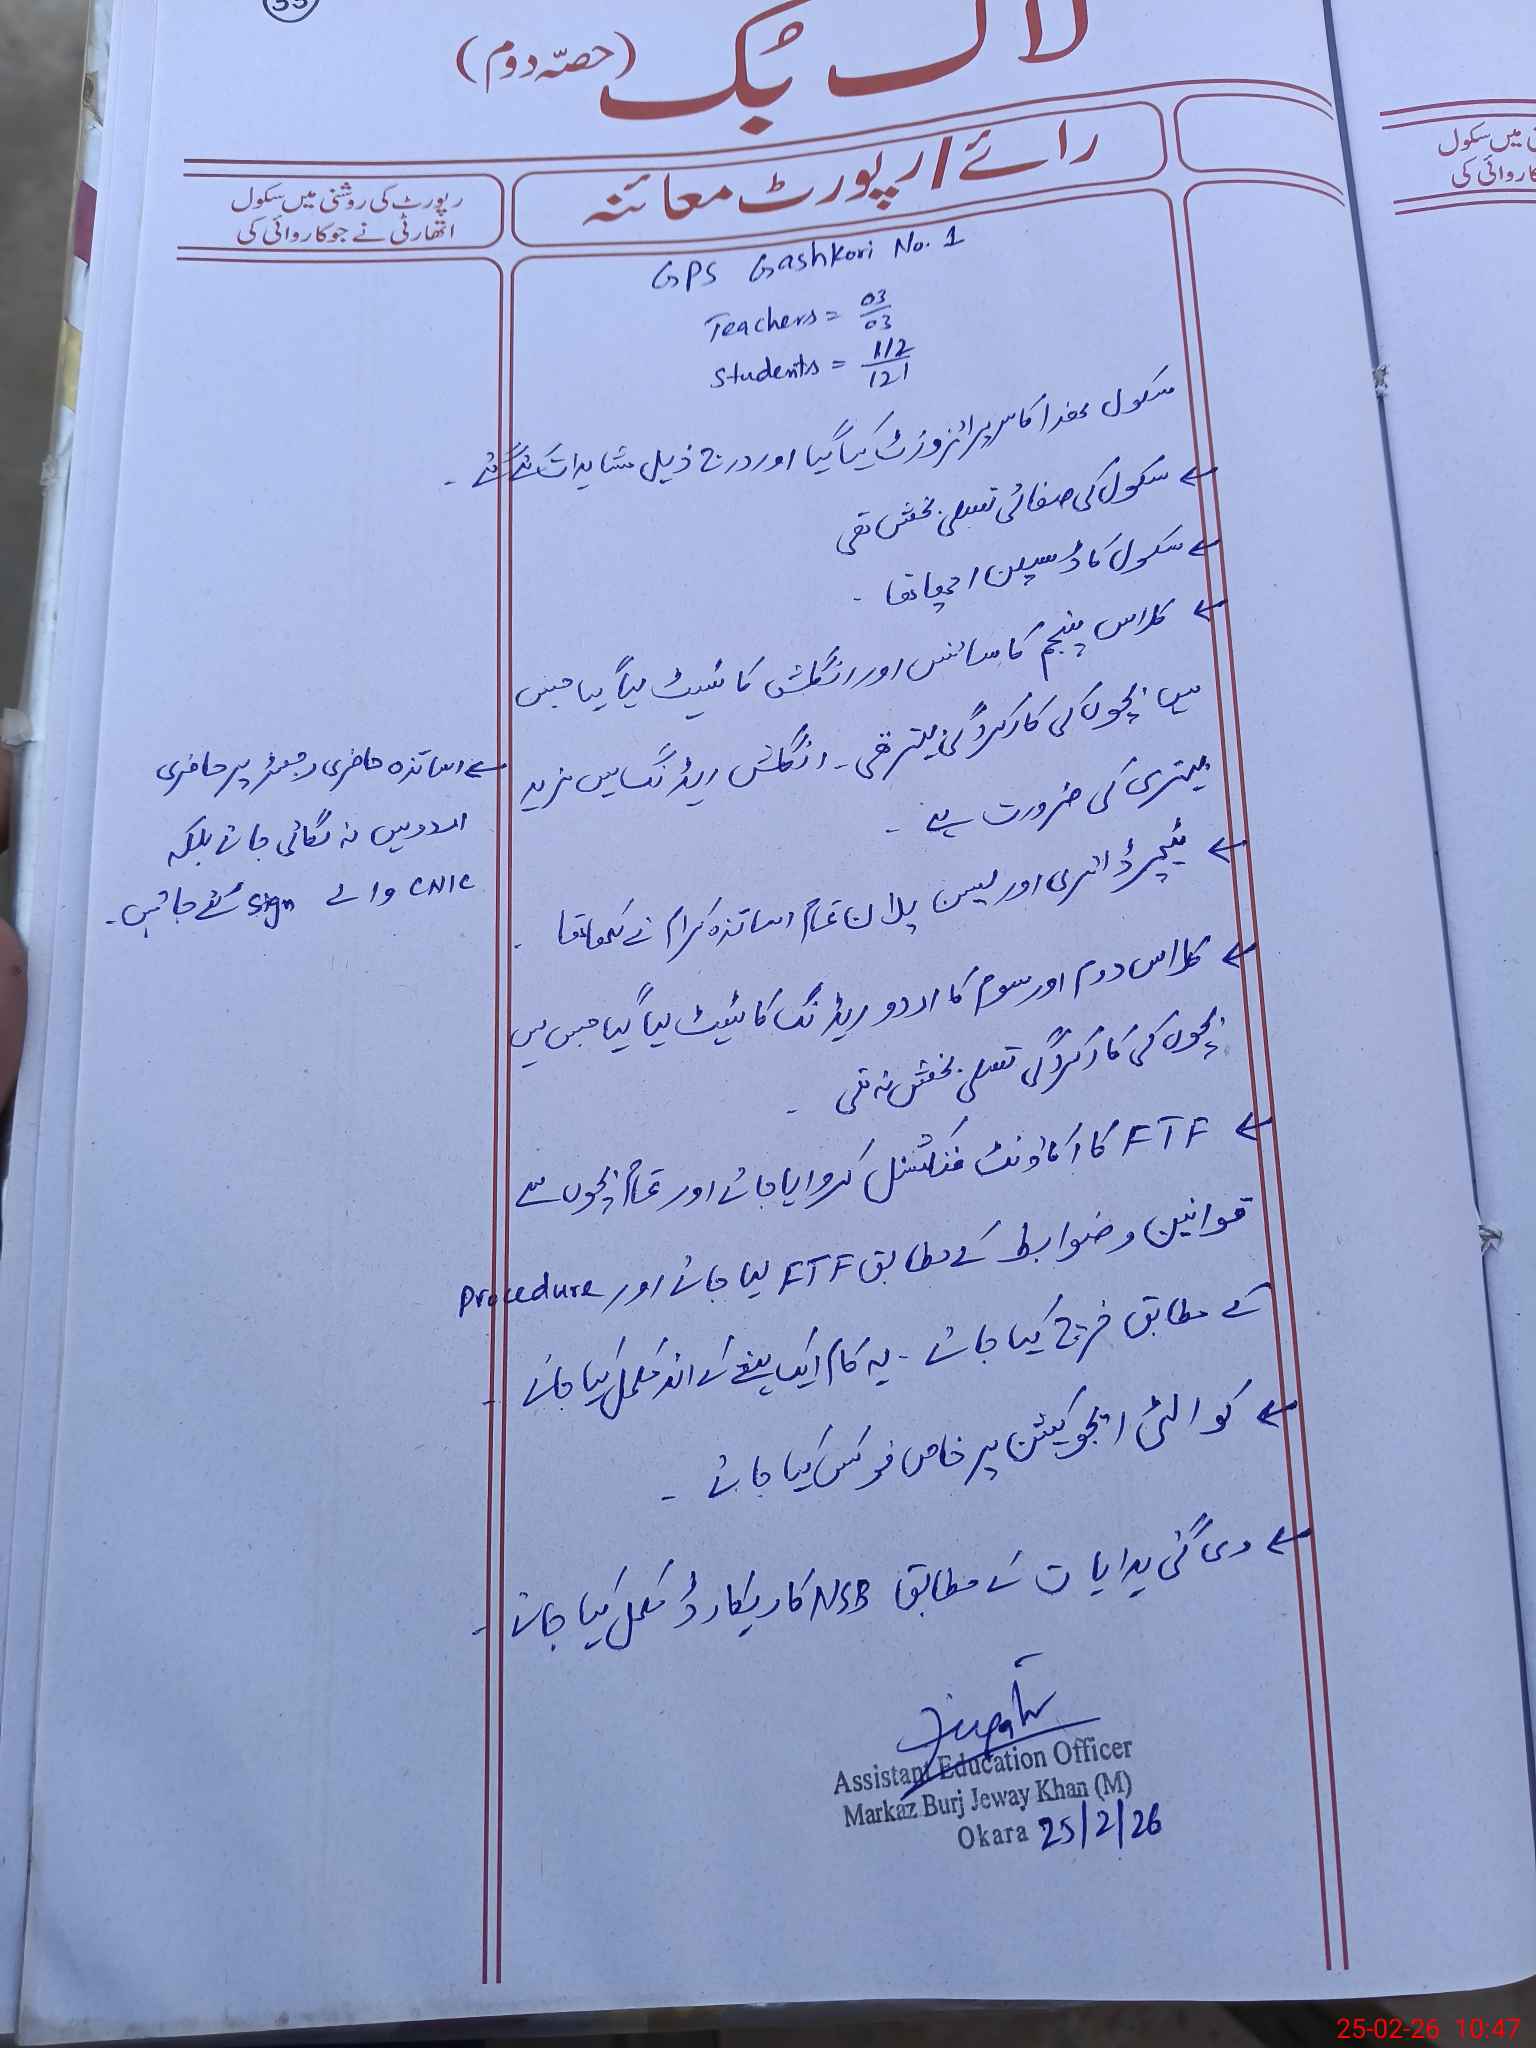 33
لاگ بُک (حصّہ دوم)
رائے/رپورٹ معائنہ
رپورٹ کی روشنی میں سکول
اتھارٹی نے جو کاروائی کی
GPS Gashkori No. 1
Teachers = 03/03
Students = 112/121
سکول ھذا کا سرپرائز وزٹ کیا گیا اور درج ذیل مشاہدات کئے گئے -
← سکول کی صفائی تسلی بخش تھی
← سکول کا ڈسپلن اچھا تھا -
← کلاس پنجم کا سائنس اور انگلش کا ٹیسٹ لیا گیا جس
میں بچوں کی کارکردگی بہتر تھی - انگلش ریڈنگ میں مزید
بہتری کی ضرورت ہے -
← ٹیچر ڈائری اور لیسن پلان تمام اساتذہ کرام نے لکھا تھا -
← کلاس دوم اور سوم کا اردو ریڈنگ کا ٹیسٹ لیا گیا جس میں
بچوں کی کارکردگی تسلی بخش نہ تھی -
← FTF کا اکاؤنٹ فنکشنل کروایا جائے اور تمام بچوں سے
قوانین و ضوابط کے مطابق FTF لیا جائے اور Procedure
کے مطابق خرچ کیا جائے - یہ کام ایک ہفتے کے اندر مکمل کیا جائے -
← کوالٹی ایجوکیشن پر خاص فوکس کیا جائے -
← دی گئی ہدایات کے مطابق NSB کا ریکارڈ مکمل کیا جائے -
← اساتذہ حاضری رجسٹر پر حاضری
اردو میں نہ لگائی جائے بلکہ
CNIC والے sign کئے جائیں -
Assistant Education Officer
Markaz Burj Jeway Khan (M)
Okara 25/2/26
میں سکول
کاروائی کی
25-02-26 10:47